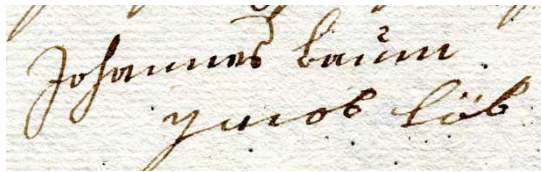 Johannes Baum
Jacob Löb